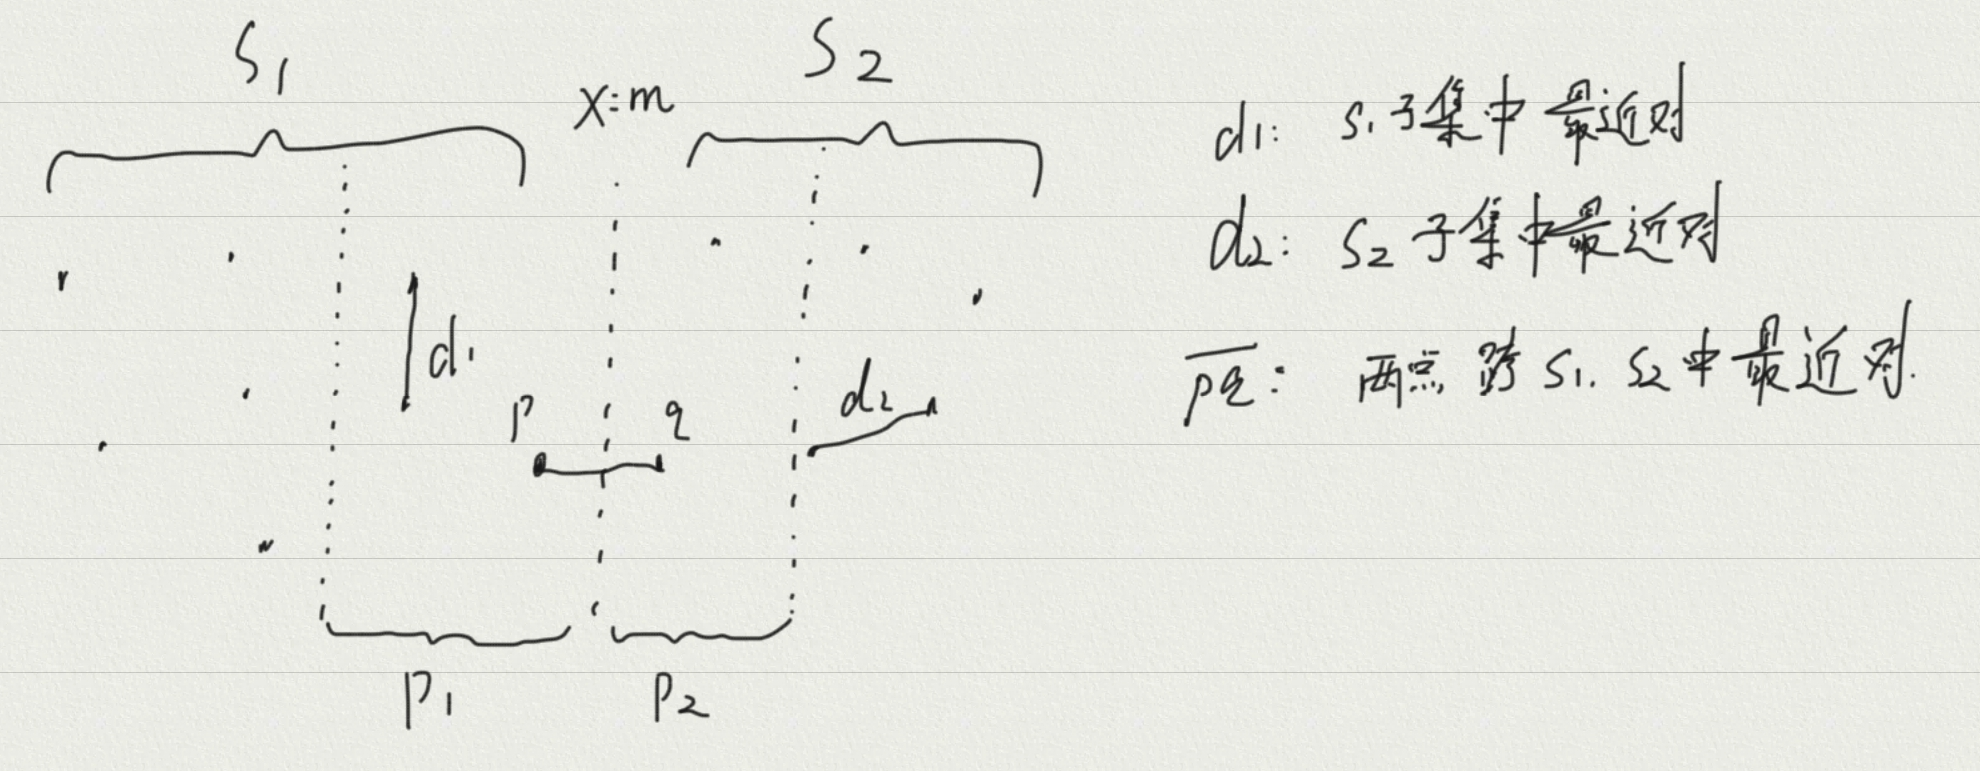 S1
S2
x=m
d1
p
q
d2
P1
P2
d1: S1子集中最近对
d2: S2子集中最近对
pq: 两点跨S1. S2中最近对.